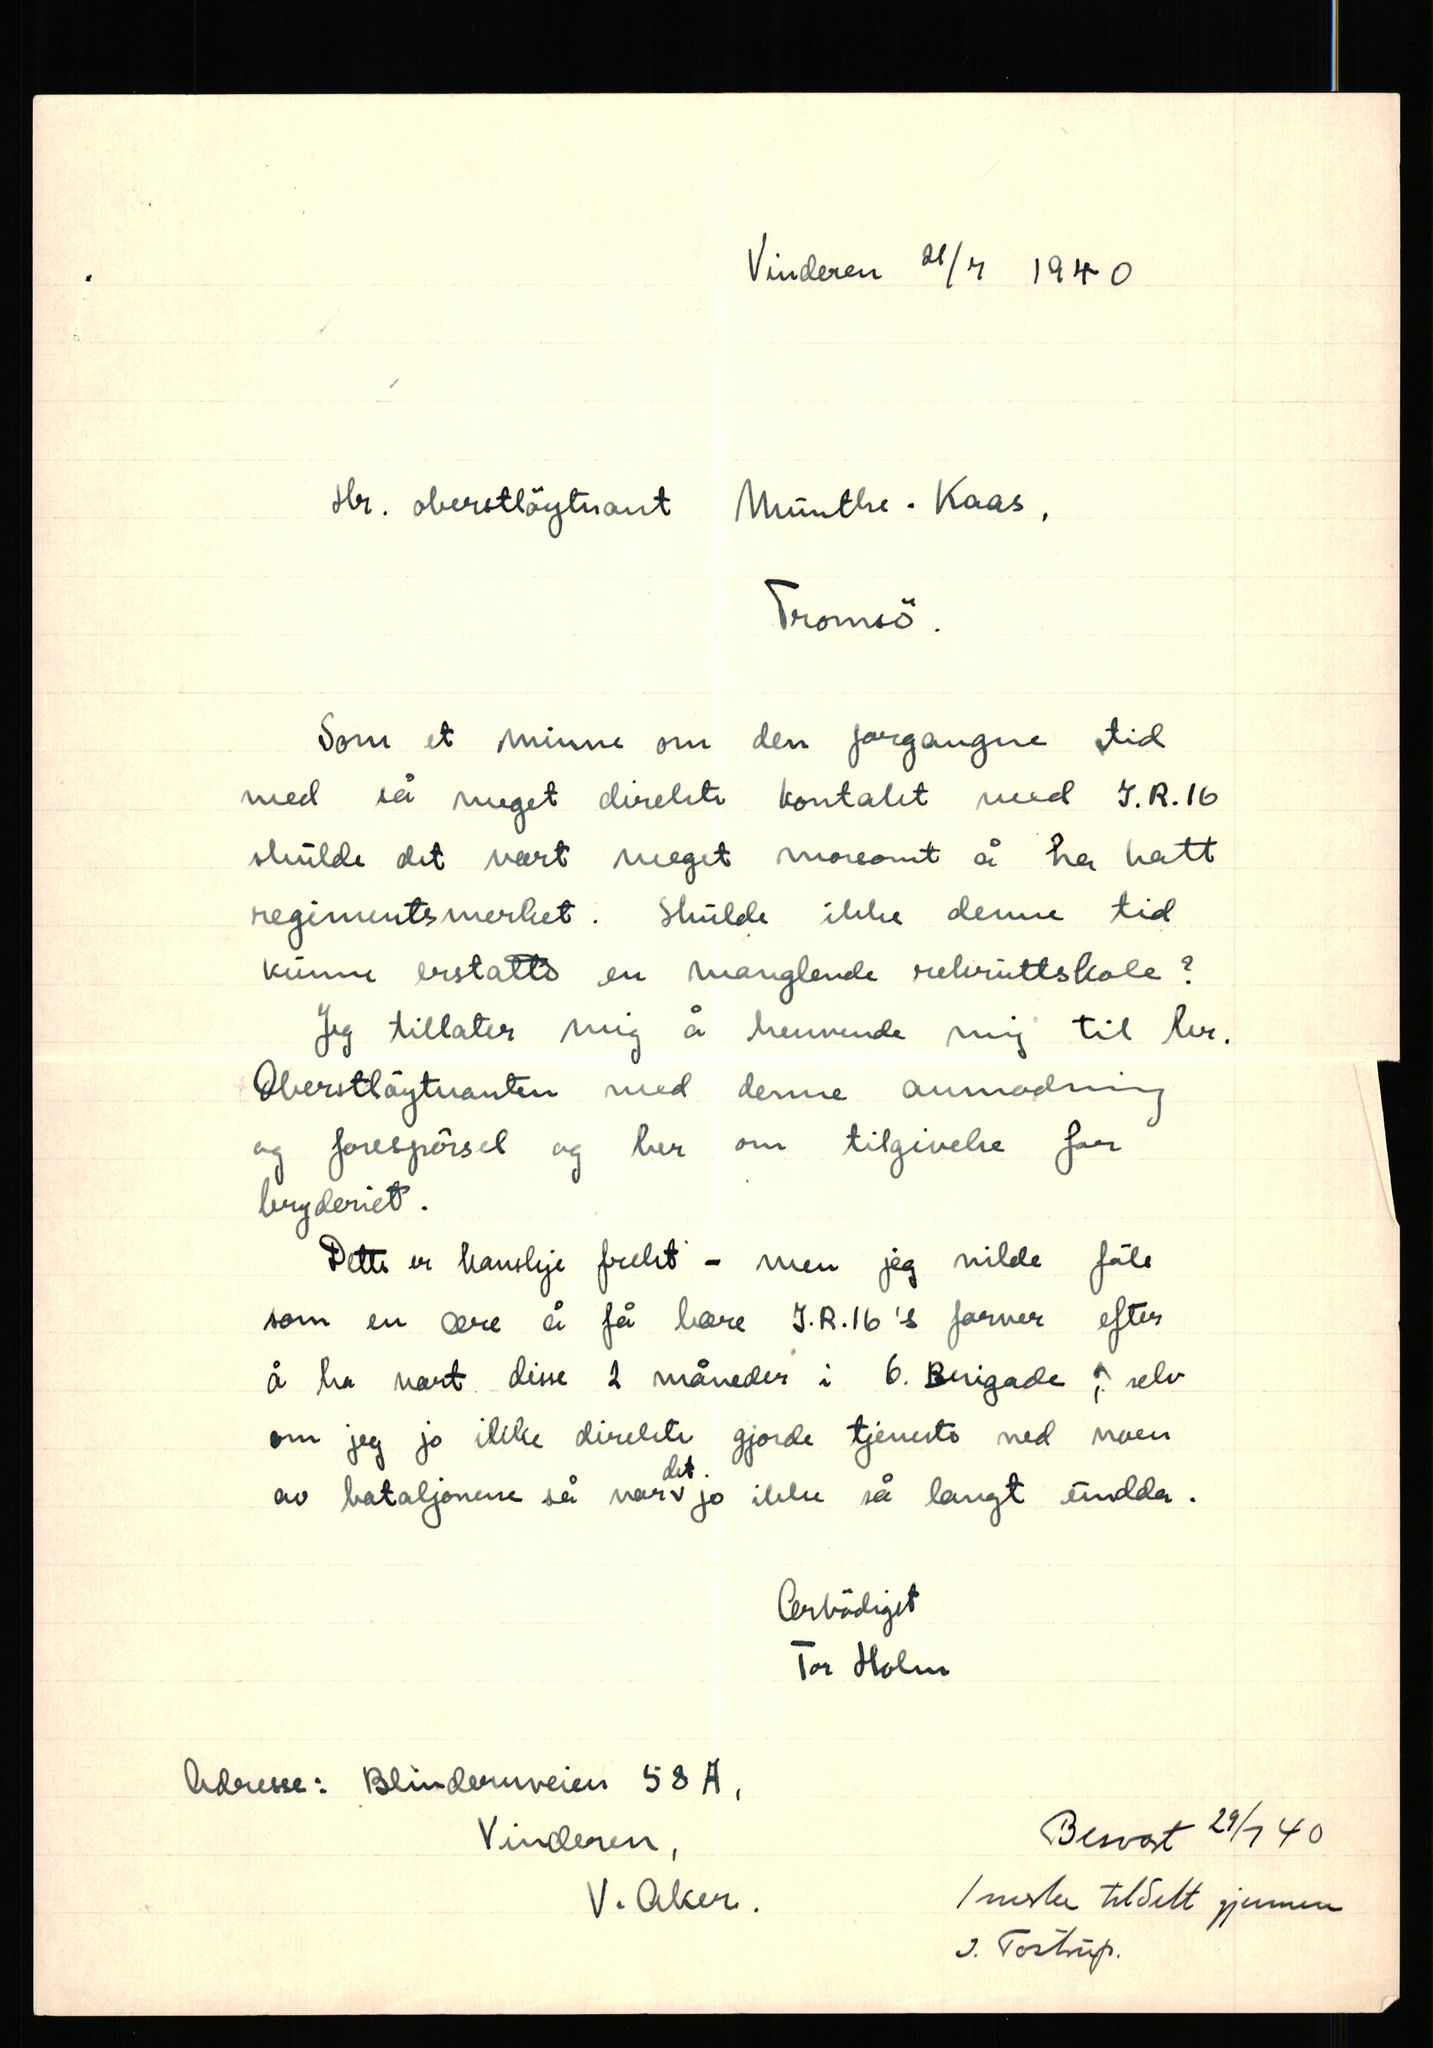 Vinderen 21/7 1940
Hr. oberstlöytnant Münthe-Kaas,
Tromsö.
Som et minne om den forgangne tid
med så meget direkte kontakt med I.R.16
skülde det vært meget morsomt å ha hatt
regimentsmerket. Skülde ikke denne tid
künne erstatte en manglende rekruttskole?
Jeg tillater mig å henvende mig til hr.
Oberstlöytnanten med denne anmodning
og forespörsel og ber om tilgivelse for
bryderiet.
Dette er kanskje frekt - men jeg vilde föle
som en ære å få bære I.R.16's farver efter
å ha vært disse 2 måneder i 6. Brigade, selv
om jeg jo ikke direkte gjorde tjeneste ved noen
av bataljonene så var det jo ikke så langt ündda.
Aerbödigst
Tor Holm
Adresse: Blindernveien 58 A,
Vinderen,
V. Aker.
Besvart 29/7 40
1 merke tildelt gjennem
J. Tostrup.